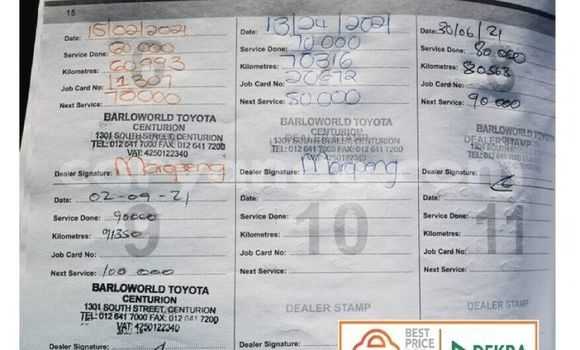 15
Date: 15/02/2021
Service Done: 60 000
Kilometres: 60993
Job Card No: 11307
Next Service: 70000
BARLOWORLD TOYOTA
CENTURION
1301 SOUTH STREET, CENTURION
TEL: 012 641 7000 FAX: 012 641 7200
VAT: 4250122340
Dealer Signature:
Date:
Service Done: 70 000
Kilometres: 70316
Job Card No: 20672
Next Service: 80000
BARLOWORLD TOYOTA
CENTURION
DEALER STAMP
1301 SOUTH STREET, CENTURION
TEL: 012 641 7000 FAX: 012 641 7200
VAT: 4250122340
Dealer Signature:
Date: 30/06/21
Service Done: 80 000
Kilometres: 80568
Job Card No:
Next Service: 90 000
DEALER STAMP
Dealer Signature:
9
Date: 02-09-21
Service Done: 90000
Kilometres: 91350
Job Card No:
Next Service: 100 000
BARLOWORLD TOYOTA
CENTURION
1301 SOUTH STREET, CENTURION
TEL: 012 641 7000 FAX: 012 641 7200
VAT: 4250122340
Dealer Signature:
10
Date:
Service Done:
Kilometres:
Job Card No:
Next Service:
DEALER STAMP
11
Date:
Service Done:
Kilometres:
Job Card No:
Next Service:
DEALER STAMP
BEST
PRICE
DEKRA